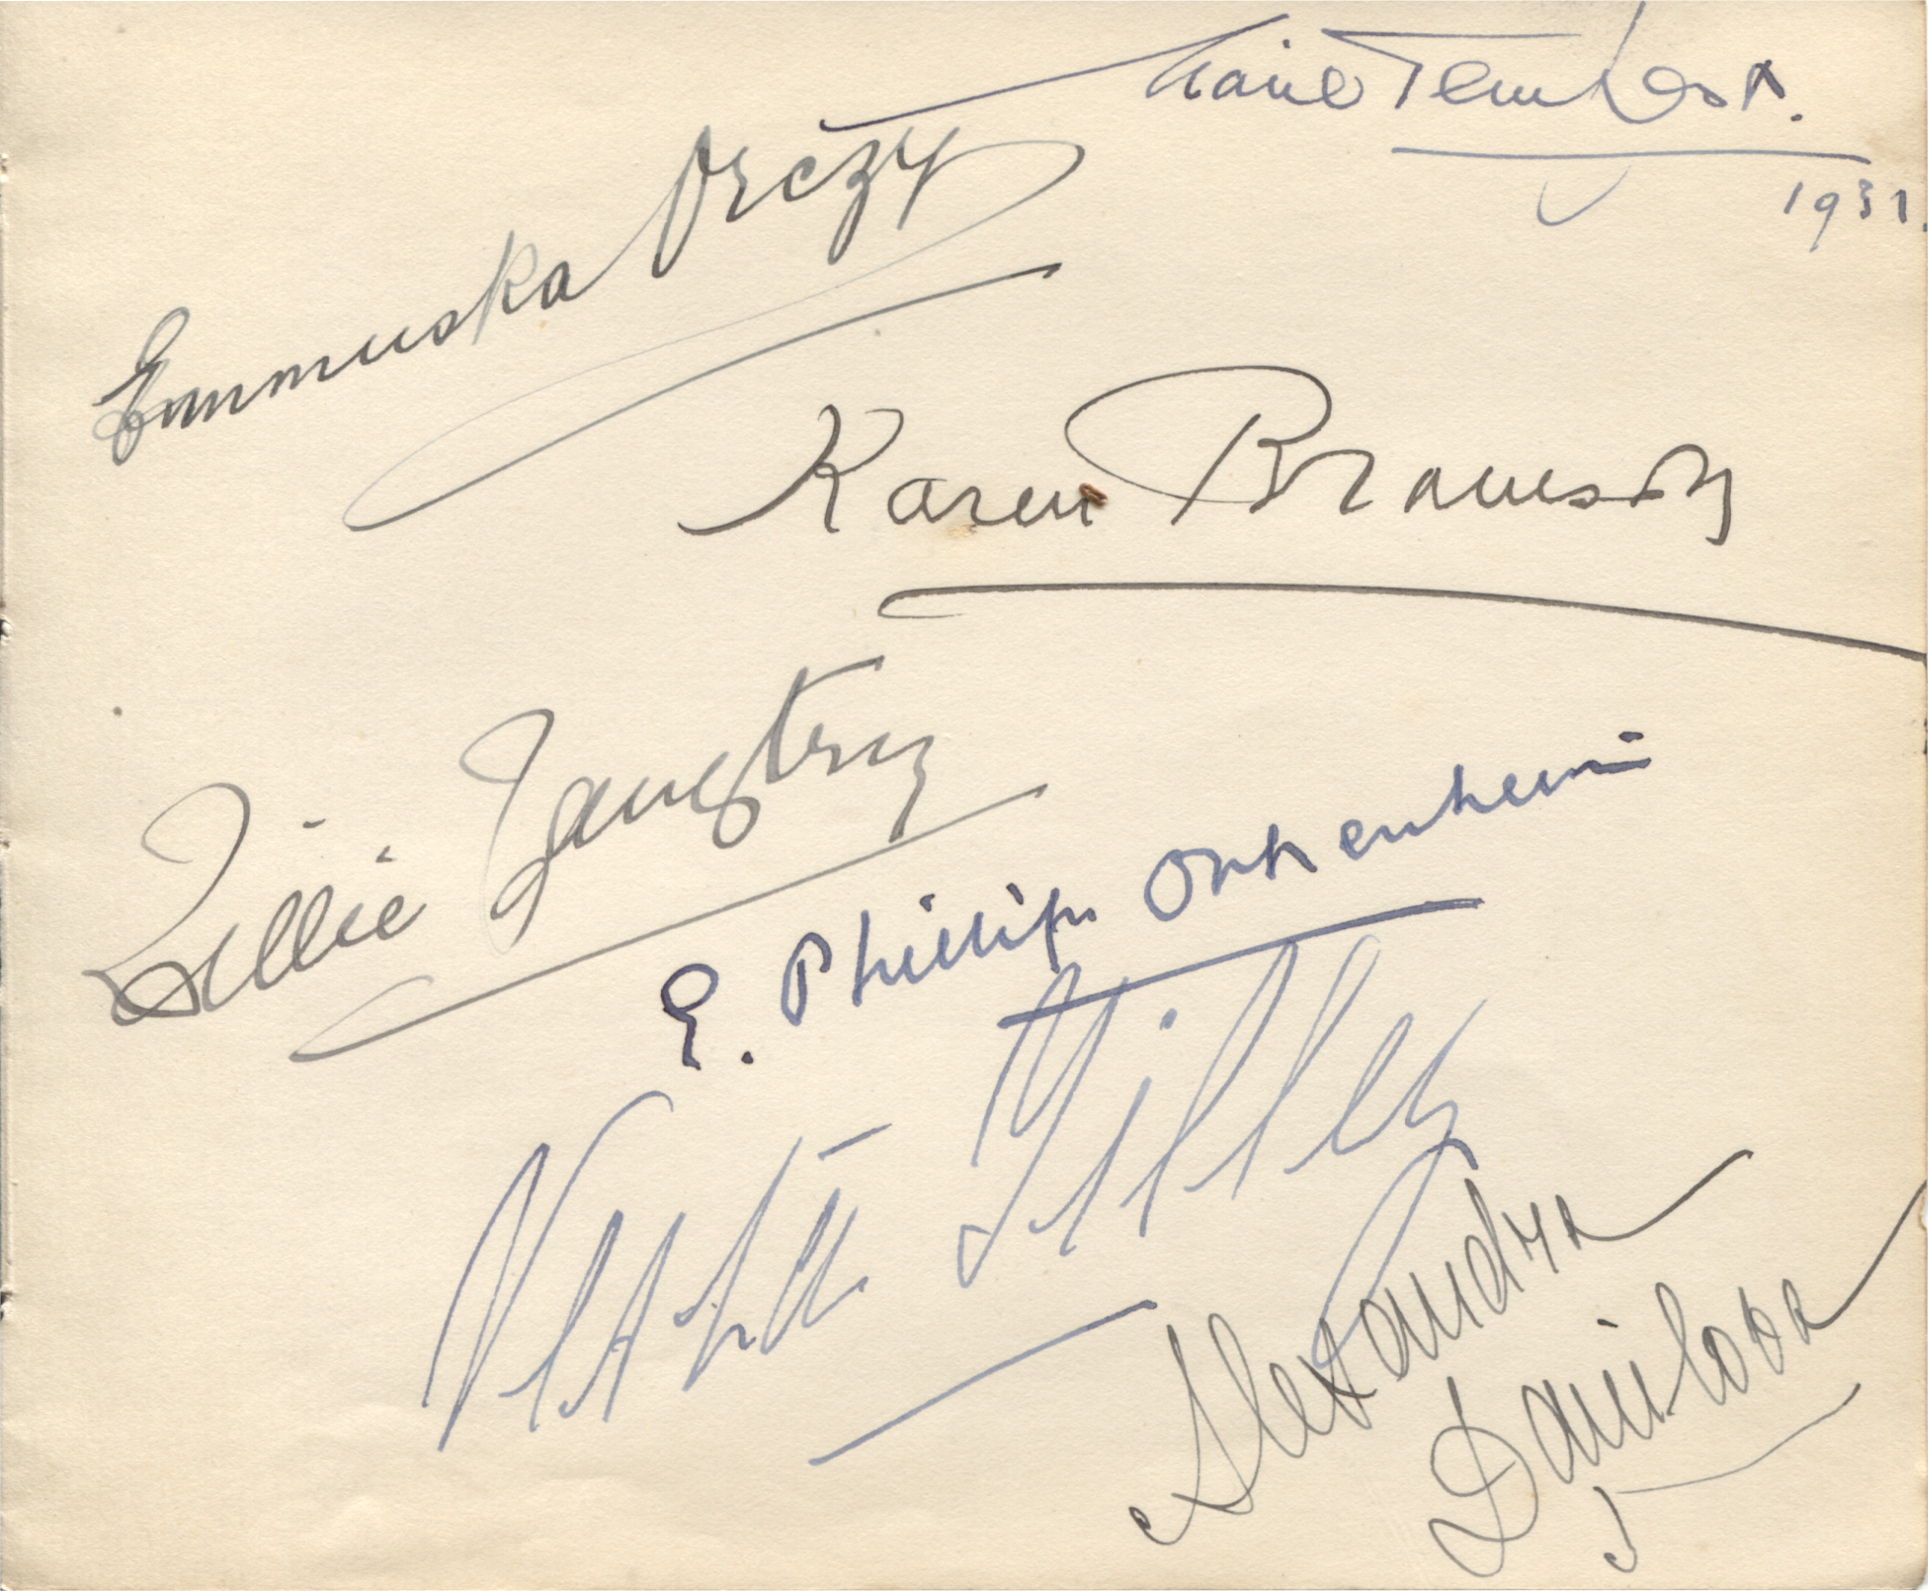 Marie Tempest.
1931.
Emmuska Orczy
Karen Bramson
Lillie Langtry
E. Phillips Oppenheim
Vesta Tilley
Alexandra
Danilova